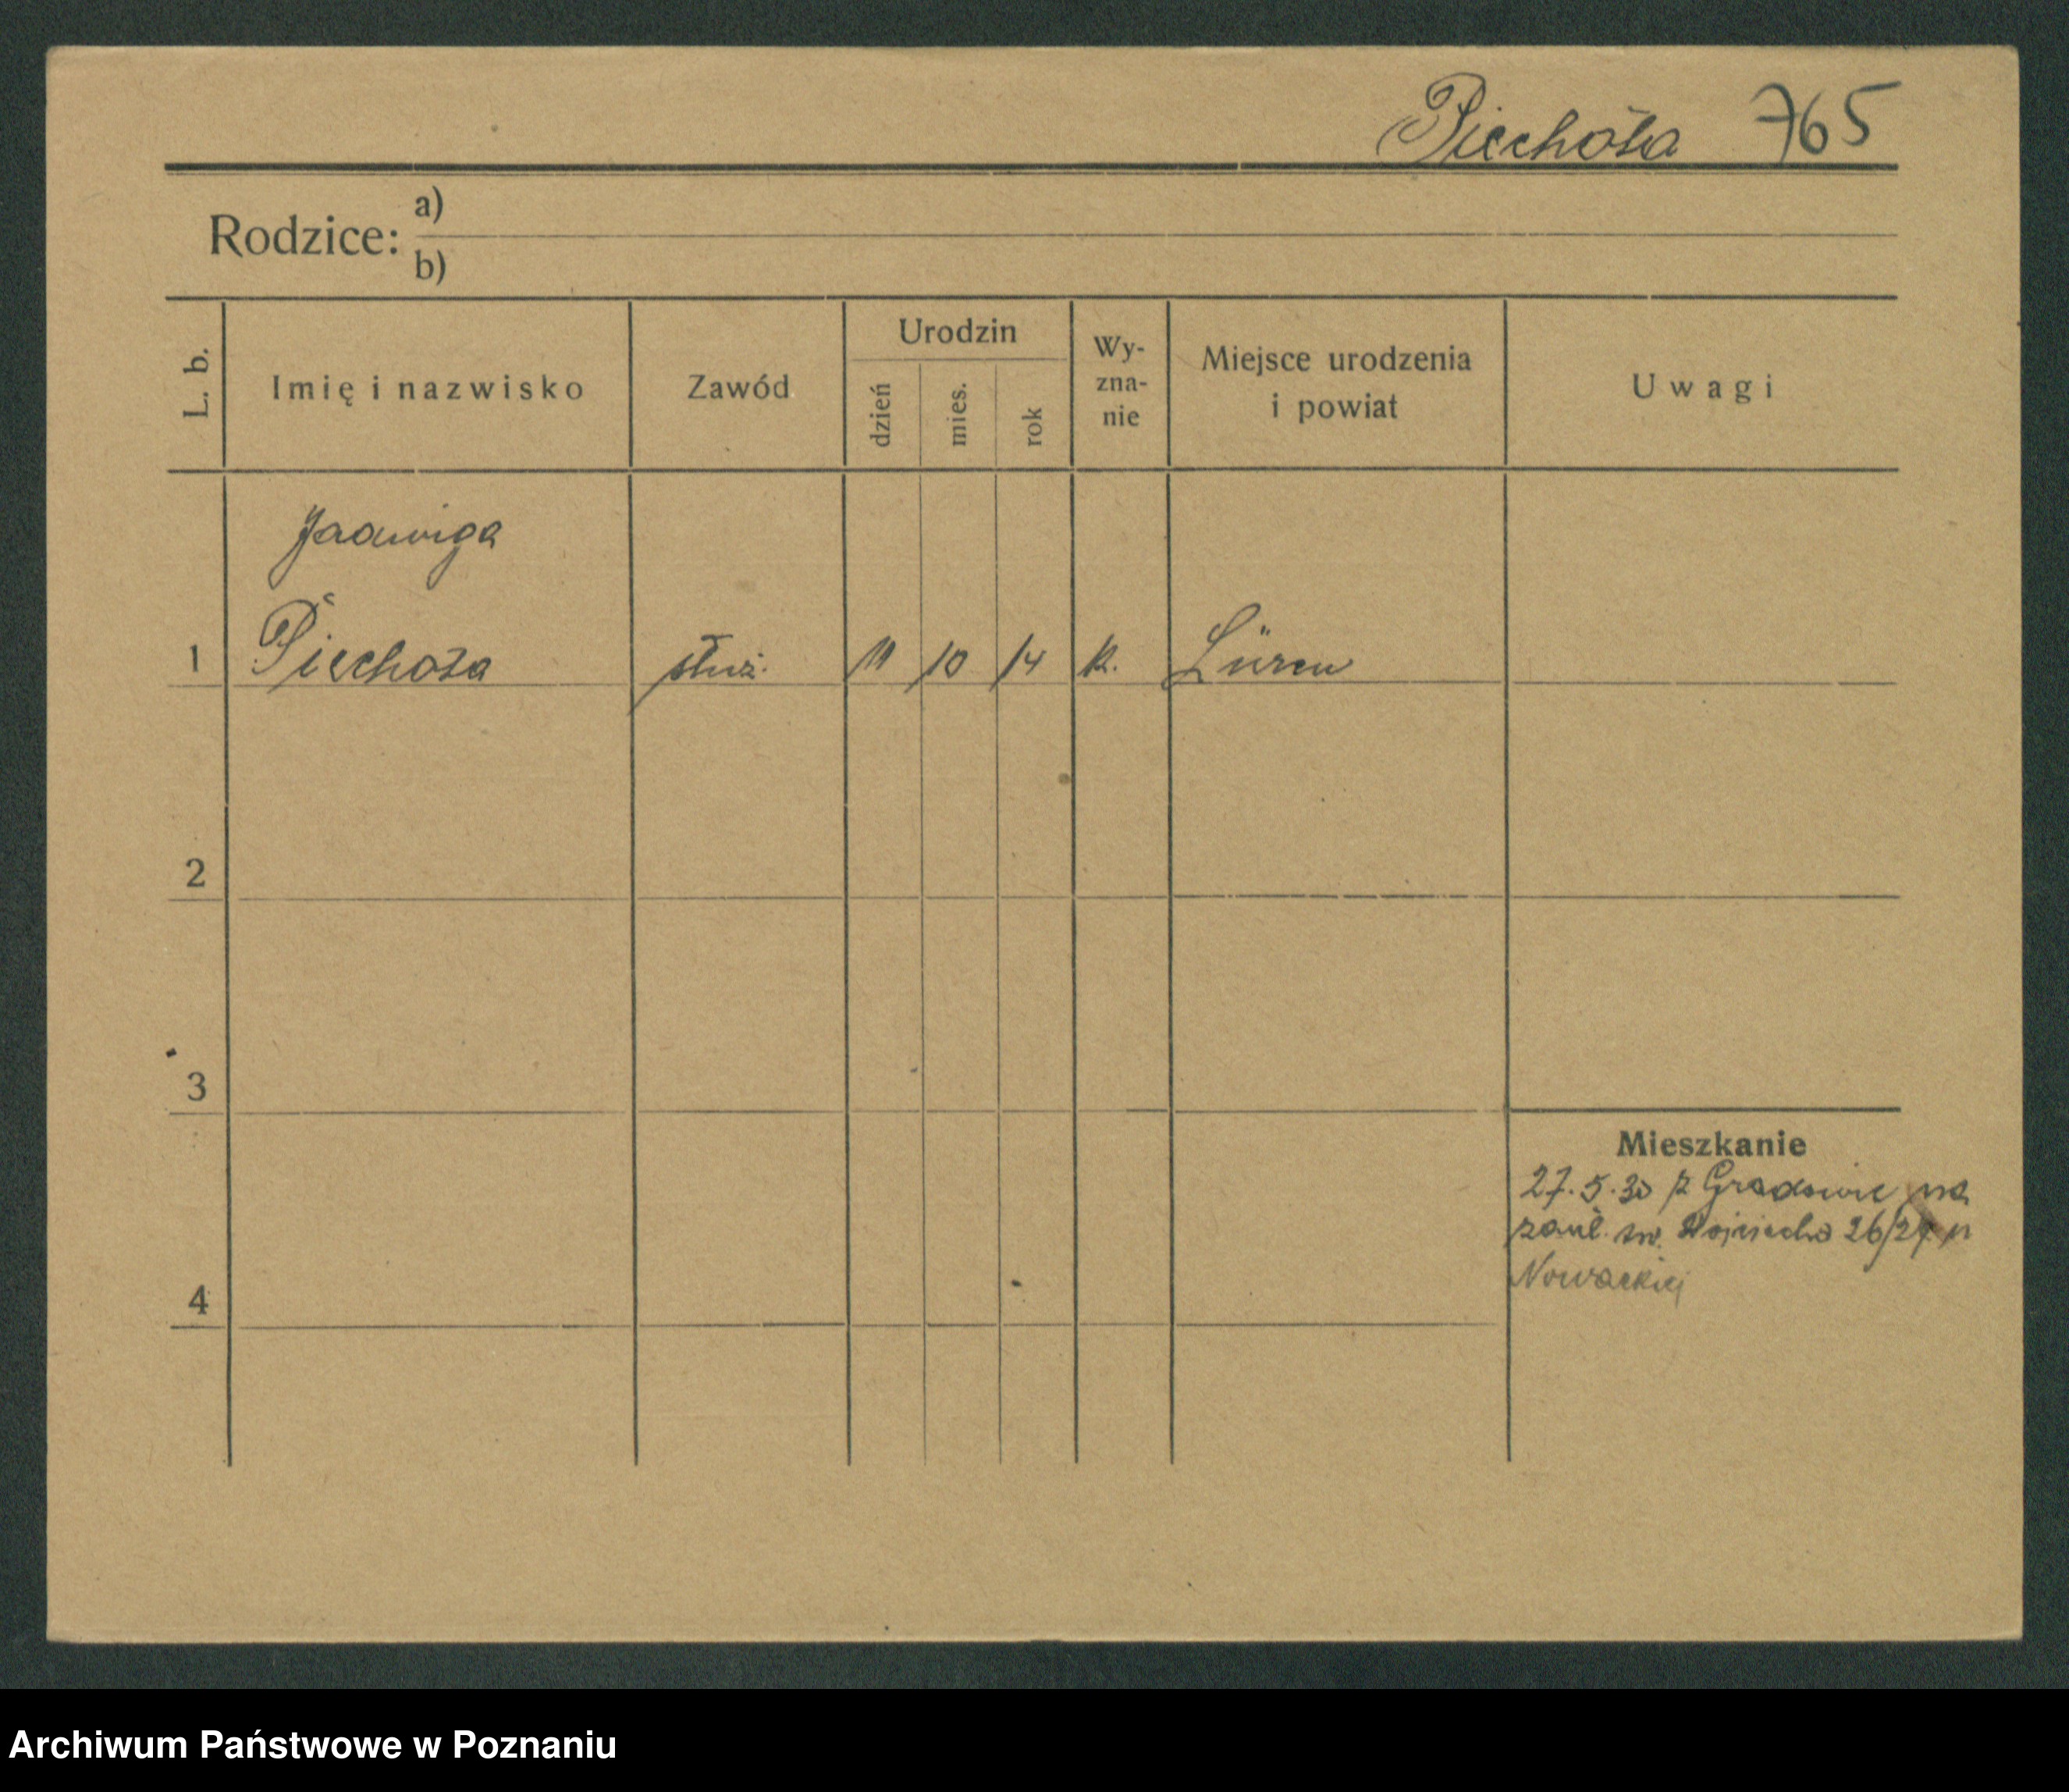 Piechota 765
Rodzice: a)
b)
L. b.
Imię i nazwisko
Zawód
Urodzin
dzień
mies.
rok
Wy-
zna-
nie
Miejsce urodzenia
i powiat
Uwagi
Jadwiga
1 Piechota służ. 11 10 14 k. Lüren
2
3
4
Mieszkanie
27.5.30 z Gradowic na
zauł. św. Wojciecha 26/27 u
Nowackiej
Archiwum Państwowe w Poznaniu